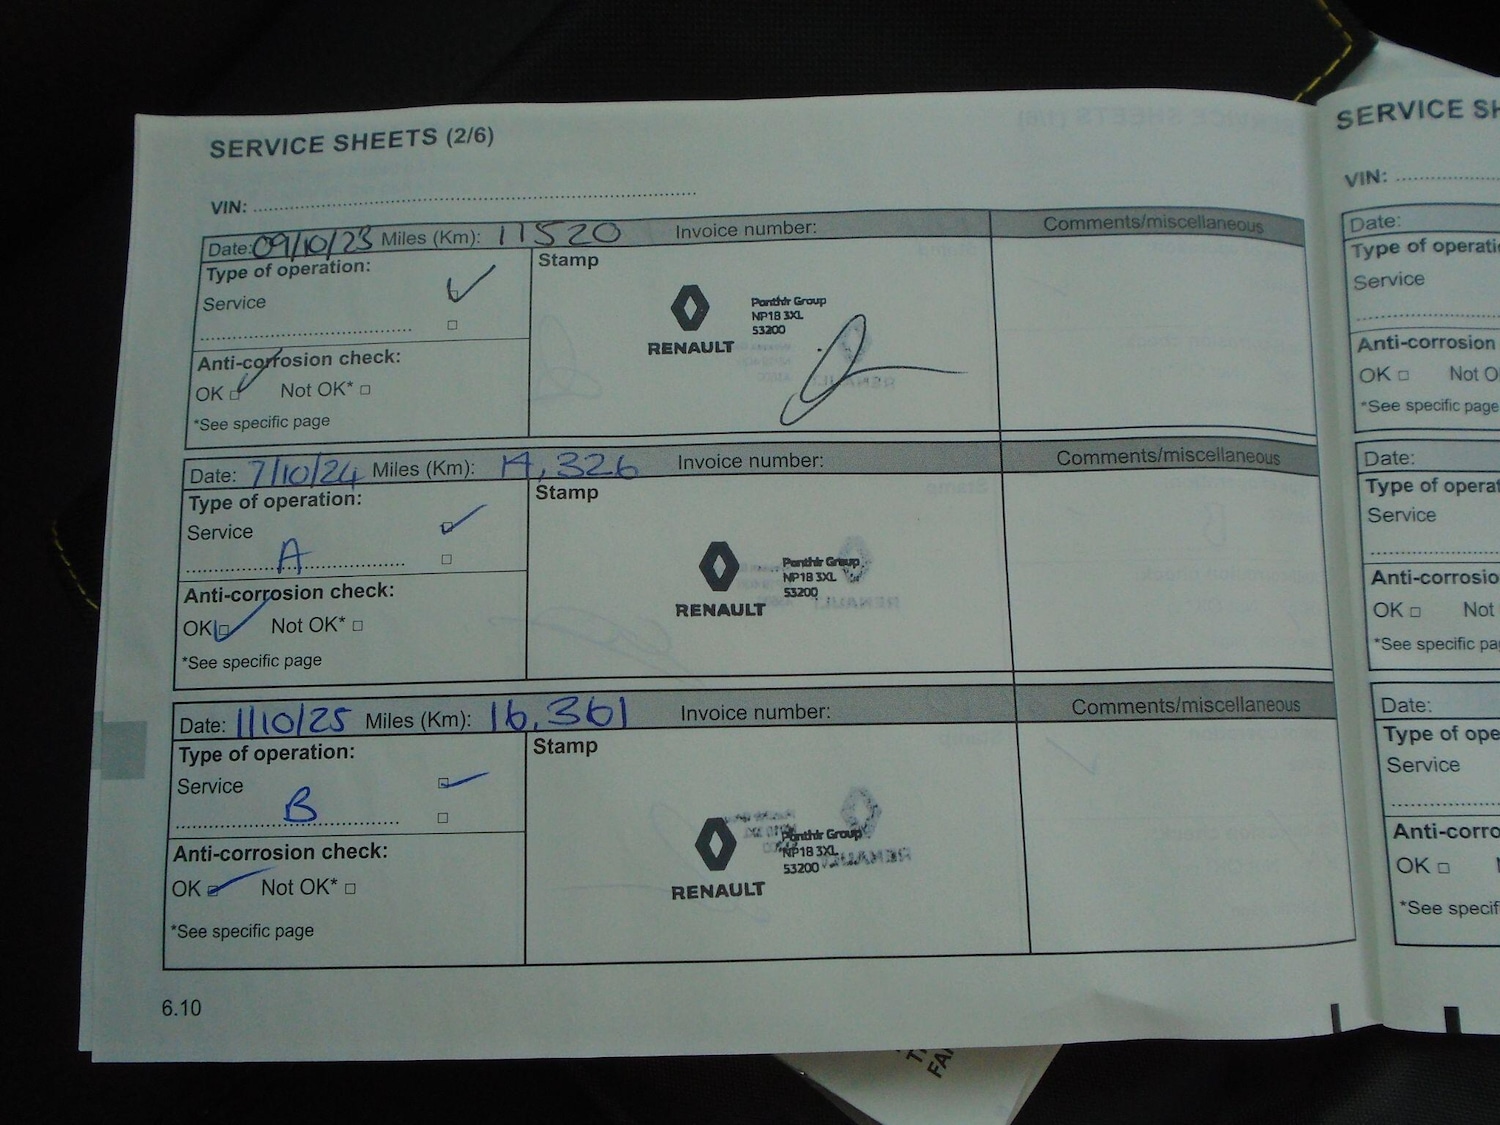 SERVICE SHEETS (2/6)
VIN:
Date: 09/10/23 Miles (Km): 11520 Invoice number: Comments/miscellaneous
Type of operation:
Service
Stamp
RENAULT
Panthir Group
NP18 3XL
53200
Anti-corrosion check:
OK Not OK*
*See specific page
Date: 7/10/24 Miles (Km): 14,326 Invoice number: Comments/miscellaneous
Type of operation:
Service
A
Stamp
RENAULT
Panthir Group
NP18 3XL
53200
Anti-corrosion check:
OK Not OK*
*See specific page
Date: 1/10/25 Miles (Km): 16,361 Invoice number: Comments/miscellaneous
Type of operation:
Service
B
Stamp
RENAULT
Panthir Group
NP18 3XL
53200
Anti-corrosion check:
OK Not OK*
*See specific page
6.10
SERVICE SH
VIN:
Date:
Type of operati
Service
Anti-corrosion
OK Not O
*See specific page
Date:
Type of operat
Service
Anti-corrosio
OK Not
*See specific pa
Date:
Type of ope
Service
Anti-corro
OK
*See specif